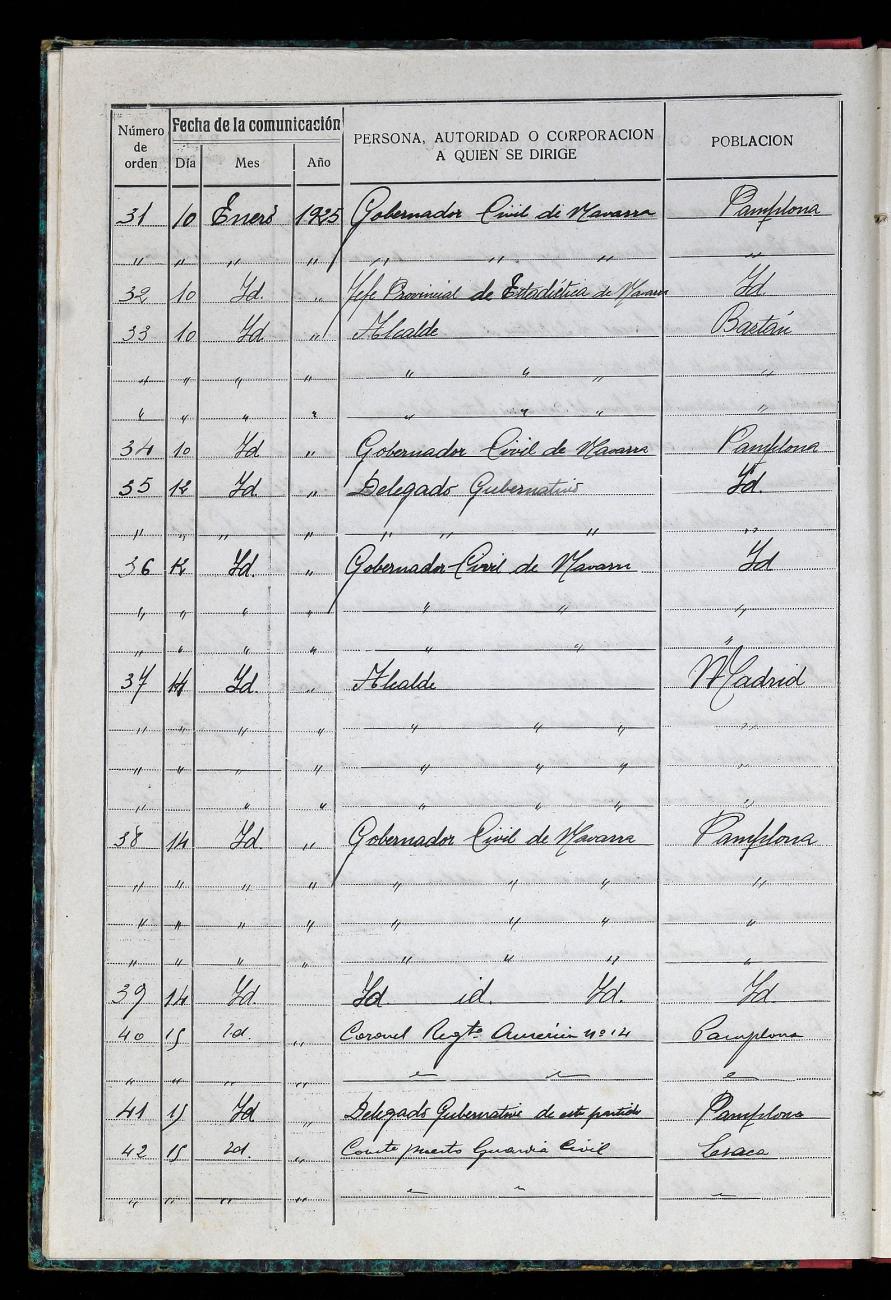 Número de orden Fecha de la comunicación PERSONA, AUTORIDAD O CORPORACION A QUIEN SE DIRIGE POBLACION
Día Mes Año
31 10 Enero 1925 Gobernador Civil de Navarra Pamplona
" " " " " " " "
32 10 Id. " Jefe Provincial de Estadística de Navarra Id
33 10 Id " Alcalde Bastán
" " " " " " " "
" " " " " " " "
34 10 Id " Gobernador Civil de Navarra Pamplona
35 12 Id. " Delegado Gubernativo Id.
" " " " " " " "
36 12 Id. " Gobernador Civil de Navarra Id
" " " " " " "
" " " " " " "
37 14 Id. " Alcalde Madrid
" " " " " " " "
" " " " " " " "
" " " " " " "
38 14 Id " Gobernador Civil de Navarra Pamplona
" " " " " " " "
" " " " " " " "
" " " " " " " "
39 14 Id. Id id. Id. Id.
40 15 Id. " Coronel Regto. nº 14 Pamplona
" " " " " " "
41 15 Id " Delegado Gubernativo de este partido Pamplona
42 15 Id. " Comte puesto Guardia Civil Lesaca
" " " " " " "